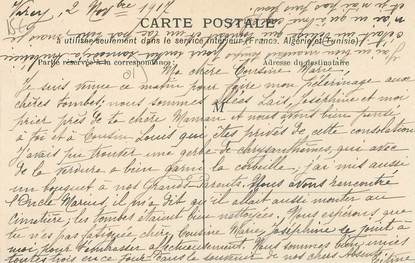 Virey, 2 Nov bre 191
CARTE POSTALE
à utiliser seulement dans le service intérieur (France, Algérie et Tunisie)
Partie réservée à la correspondance
Adresse du destinataire
Ma chère Cousine Marie
Je suis venue ce matin pour faire mon pèlerinage aux
chères tombes; nous sommes Mes Lais, Joséphine et moi
prier près de ta chère Maman et nous avons bien pensé
à toi et à Cousin Louis qui êtes privés de cette consolation
J'avais pu trouver une gerbe de chrysanthèmes, qui avec
de la verdure a bien garni la corbeille, j'ai mis aussi
un bouquet à nos Grands Parents. Nous avons rencontré
l'Oncle Marius, il m'a dit qu'il allait aussi monter au
cimetière, les tombes étaient bien nettoyées. Nous espérons que
tu n'es pas fatiguée chère Cousine Marie, Joséphine se joint à
moi pour t'embrasser affectueusement. Nous sommes bien unies
toutes trois en ce jour dans le souvenir de nos chers Absents